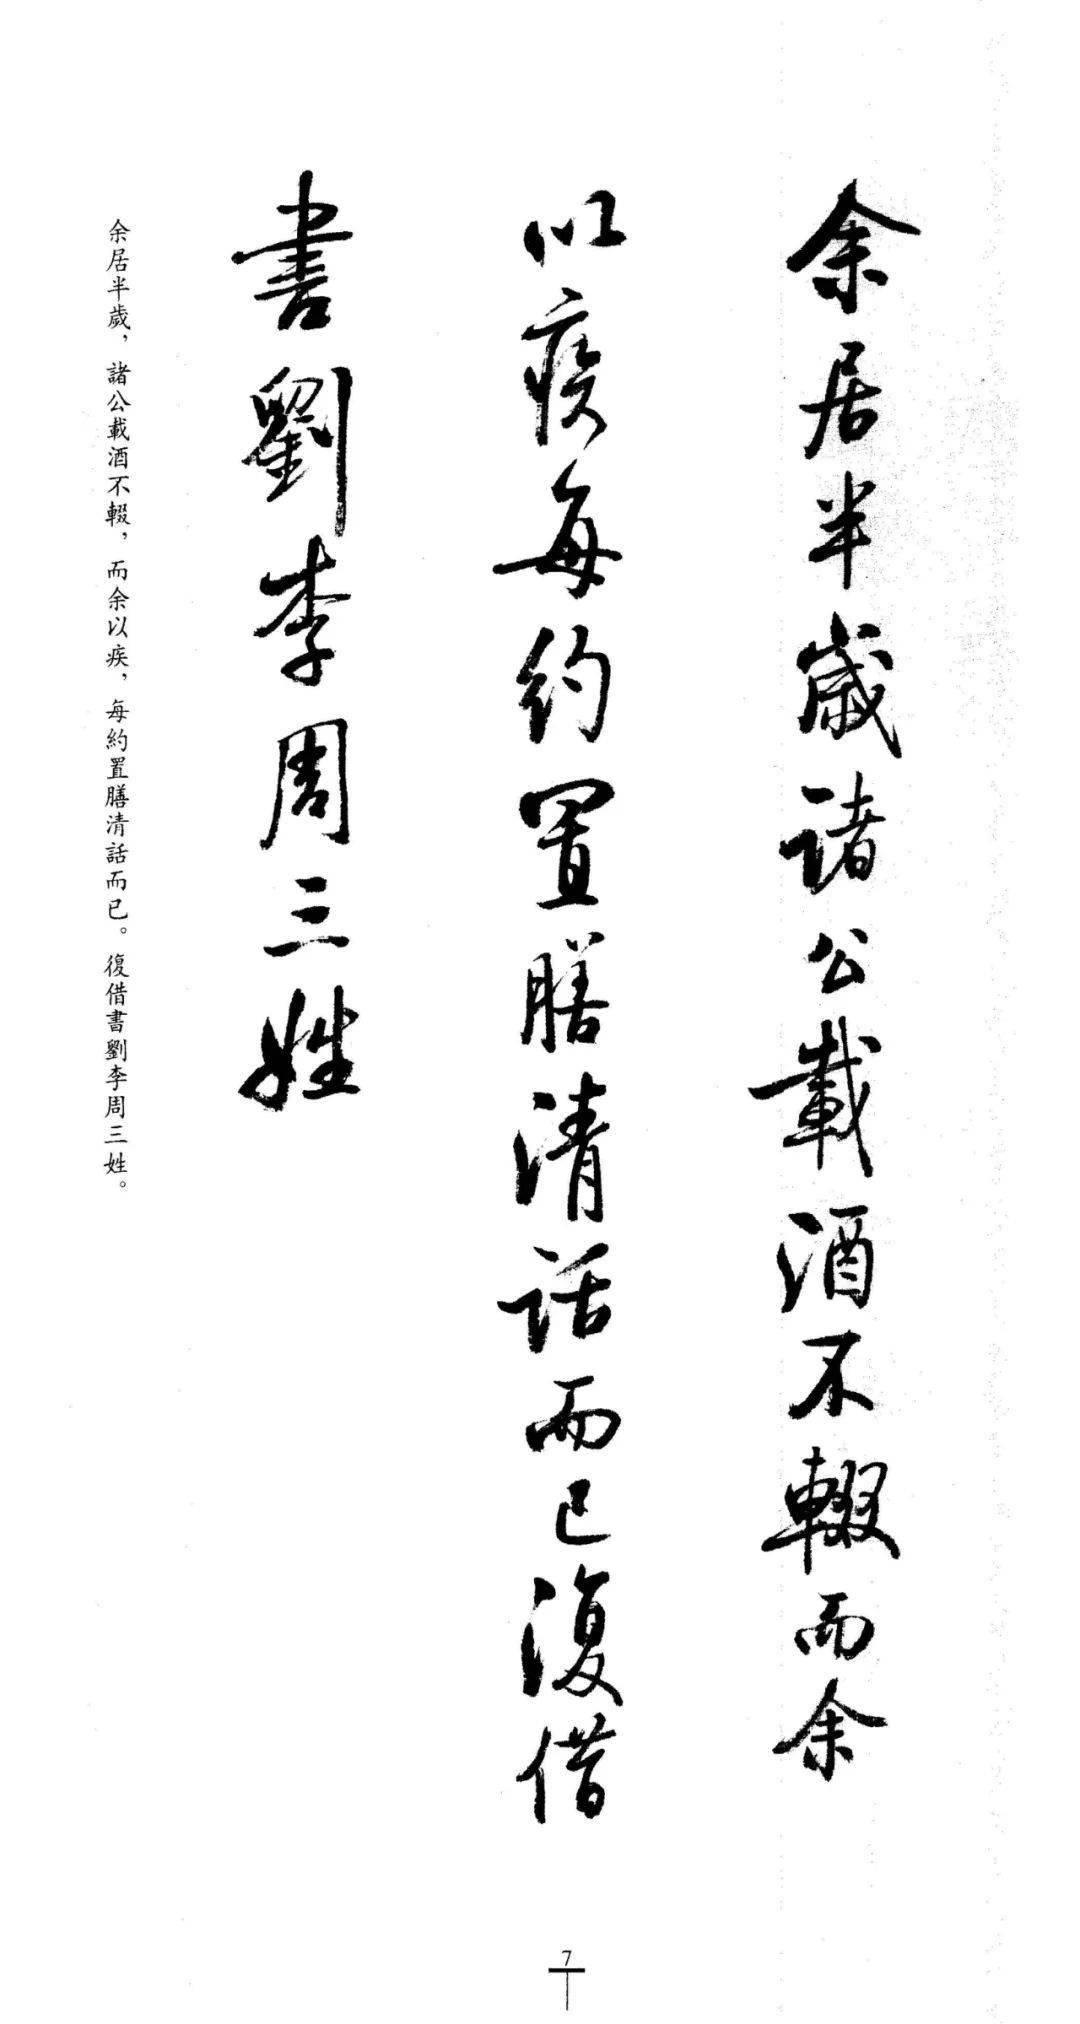 余居半歲諸公載酒不輟而余
以疾每約置膳清話而已復借
書劉李周三姓
余居半歲，諸公載酒不輟，而余以疾，每約置膳清話而已。復借書劉李周三姓。
7